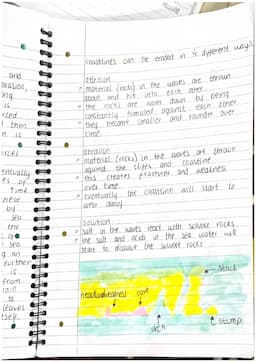 coastlines can be eroded in 4 different ways
attrition
> material (rocks) in the waves are thrown
about and hit into each other
> the rocks are worn down by being
constantly tumbled against each other
> they become smaller and rounder over
time.
abrasion
> material (rocks) in the waves are thrown
against the cliffs and coastline
> this creates fractures and weakness
over time
> eventually the coastline will start to
wear away
solution
> salt in the waves react with soluble rocks
> the salt and acids in the sea water will
start to dissolve the soluble rocks
stack
headland
weakness
cave
arch
stump
and
is
then
Time
by
sea
the
sea
an
further
is
from
to
leaves
itself